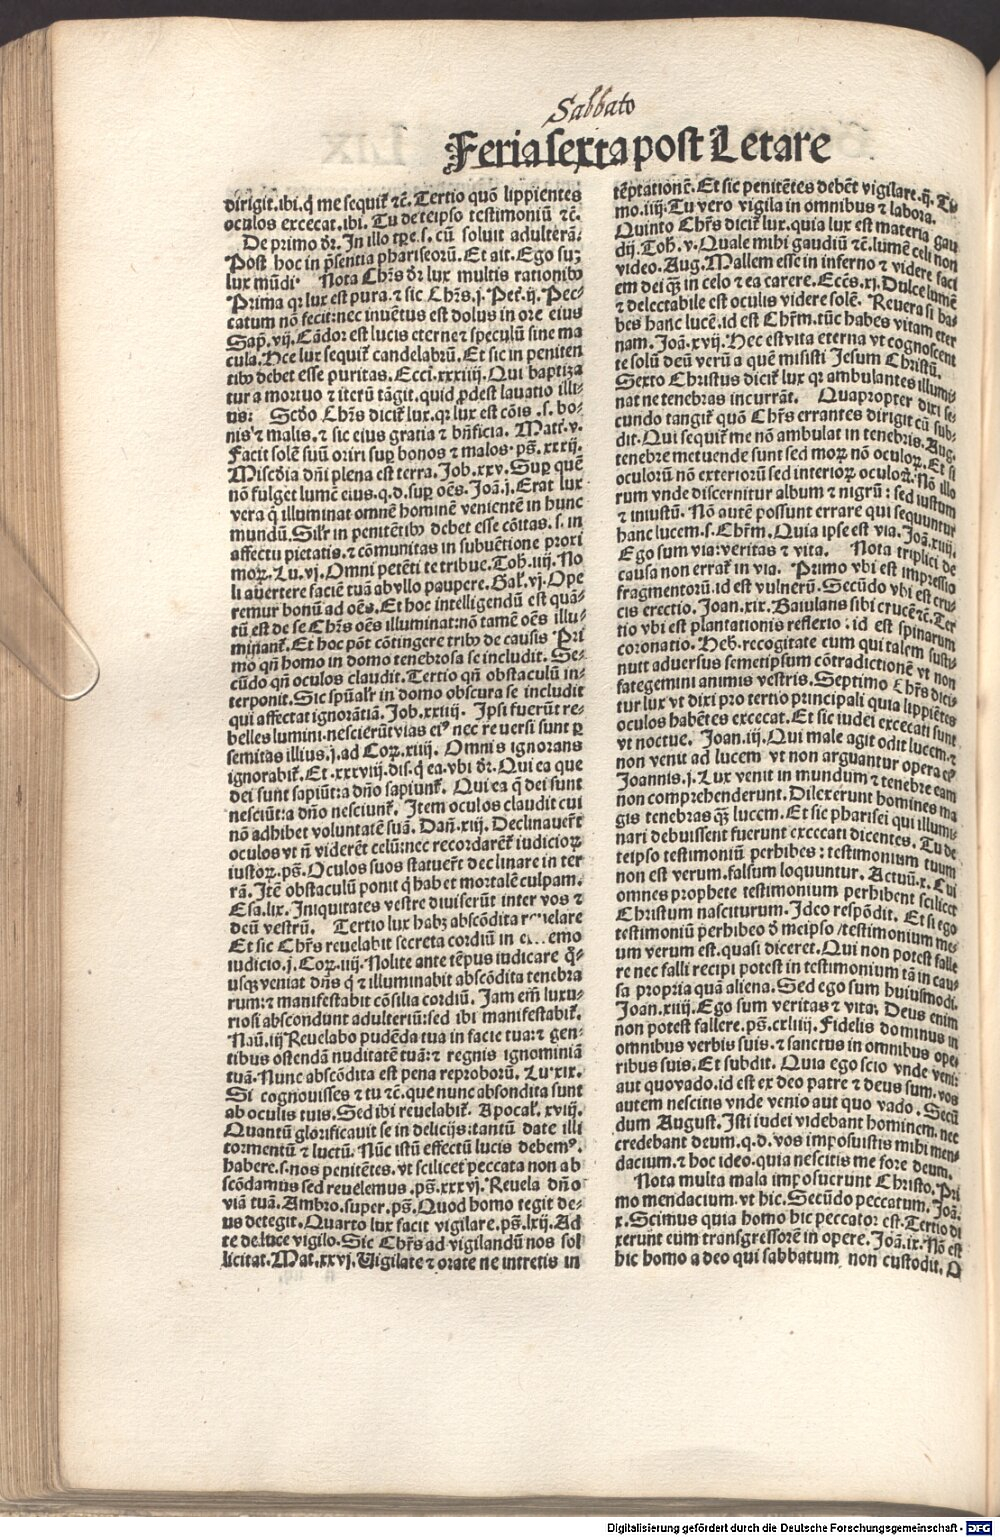 Sabbato
Feria sexta post Letare
dirigit.ibi.q̄ me sequit᷑ ⁊c̄. Tertio quō lippientes
oculos excecat.ibi. Tu de teipso testimoniū ⁊c̄.
De primo dr̄. In illo tp̄e.s. cū soluit adulterā:
Post hoc in p̄sentia phariseorū. Et ait. Ego suꝫ
lux mūdi. Nota Chr̄s dr̄ lux multis rationibꝰ
Prima qꝛ lux est pura. ⁊ sic Chr̄s.j. Pet᷑.ij. Pec-
catum nō fecit: nec inuētus est dolus in ore eius
Sap̄.vij. Cādor est lucis eterne ⁊ speculū sine ma
cula. Hec lux sequit᷑ candelabrū. Et sic in peniten
tibꝰ debet esse puritas. Ecci̅.xxxiiij. Qui baptiza
tur a mortuo ⁊ iterū tāgit. quid ꝓdest lauatio illi-
us: Scd̄o Chr̄s dicit᷑ lux. qꝛ lux est cōis .s. bo-
nis ⁊ malis. ⁊ sic eius gratia ⁊ bn̄ficia. Matt᷑.v.
Facit solē suū oriri suꝑ bonos ⁊ malos. ps̄.xxxij.
Misc̄dia dn̄i plena est terra. Job.xxv. Suꝑ quē
nō fulget lumē eius.q.d.suꝑ oēs. Joā.j. Erat lux
vera q̄ illuminat omnē hominē venientē in hunc
mundū. Silr̄ in penitētibꝰ debet esse cōitas.s. in
affectu pietatis. ⁊ cōmunitas in subuētione proxi
moꝝ. Lu.vj. Omni petēti te tribue. Tob̄.iiij. No
li auertere faciē tuā ab vllo paupere. Gal̄.vj. Ope
remur bonū ad oēs. Et hoc intelligendū est quā-
tū est de se Chr̄s oēs illuminat: nō tamē oēs illu-
minant᷑. Et hoc pōt cōtingere tribꝰ de causis Pri
mo qn̄ homo in domo tenebrosa se includit. Se-
cūdo qn̄ oculos claudit. Tertio qn̄ obstaculū in-
terponit. Sic spūalr̄ in domo obscura se includit
qui affectat ignorātiā. Job.xxiiij. Ipsi fuerūt re-
belles lumini. nescierūt vias eiꝰ nec reuersi sunt ꝑ
semitas illius.j. ad Coꝝ.xiiij. Omnis ignorans
ignorabit᷑. Et .xxxviij. dis. q̄ ea. vbi dr̄. Qui ea que
dei sunt sapiūt: a dn̄o sapiunt᷑. Qui ea q̄ dei sunt
nesciūt: a dn̄o nesciunt᷑. Item oculos claudit cui
nō adhibet voluntatē suā. Dan̄.xiij. Declinauer̄t
oculos vt n̄ viderēt celū: nec recordarēt᷑ iudicioꝝ
iustoꝝ. ps̄. Oculos suos statuer̄t declinare in ter
rā. Itē obstaculū ponit q̄ habet mortalē culpam.
Esa.lix. Iniquitates vestre diuiserūt inter vos ⁊
deū vestrū. Tertio lux habꝫ abscōdita re elare
Et sic Chr̄s reuelabit secreta cordiū in e emo
iudicio.j. Coꝝ.iiij. Nolite ante tēpus iudicare q̄-
usqꝫ veniat dn̄s q̄ ⁊ illuminabit abscōdita tenebra
rum: ⁊ manifestabit cōsilia cordiū. Jam em̄ luxu-
riosi abscondunt adulteriū: sed ibi manifestabit᷑.
Naū.iij Reuelabo pudēda tua in facie tua: ⁊ gen-
tibus ostendā nuditatē tuā: ⁊ regnis ignominiā
tuā. Nunc abscōdita est pena reproborū. Lu.xix.
Si cognouisses ⁊ tu ⁊c̄. que nunc absondita sunt
ab oculis tuis. Sed ibi reuelabit᷑. Apocal̄. xviij.
Quantū glorificauit se in delicijs: tantū date illi
tormentū ⁊ luctū. Nūc istū effectū lucis debemꝰ.
habere.s. nos penitētes. vt scilicet peccata non ab
scōdamus sed reuelemus .ps̄.xxxvj. Reuela dn̄o
viā tuā. Ambro. super. ps̄. Quod homo tegit de-
us detegit. Quarto lux facit vigilare. ps̄.lxij. Ad
te de luce vigilo. Sic Chr̄s ad vigilandū nos sol
licitat. Mat.xxvj. Vigilate ⁊ orate ne intretis in
tēptationē. Et sic penitētes debēt vigilare. ij. Ti
mo.iiij. Tu vero vigila in omnibus ⁊ labora.
Quinto Chr̄s dicit᷑ lux. quia lux est materia gau
dij. Tob̄.v. Quale mihi gaudiū ⁊c̄. lumē celi non
video. Aug. Mallem esse in inferno ⁊ videre faci
em dei qꝫ in celo ⁊ ea carere. Ecc̄es.xj. Dulce lumē
⁊ delectabile est oculis videre solē. Reuera si ha-
bes hanc lucē. id est Chr̄m. tūc habes vitam eter
nam. Joā.xvij. Hec est vita eterna vt cognoscent
te solū deū verū a quē misisti Jesum Christū.
Sexto Christus dicit᷑ lux qꝛ ambulantes illumi-
nat ne tenebras incurrāt. Quapropter dixi se-
cundo tangit᷑ quō Chr̄s errantes dirigit cū sub-
dit. Qui sequit᷑ me nō ambulat in tenebris. Aug.
tenebre metuende sunt sed moꝝ nō oculoꝝ. Et si
oculorū nō exteriorū sed interioꝝ oculoꝝ. Nō illo
rum vnde discernitur album ⁊ nigrū: sed iustum
⁊ iniustū. Nō autē possunt errare qui sequuntur
hanc lucem.s. Chr̄m. Quia ipse est via. Joā.xiiij.
Ego sum via: veritas ⁊ vita. Nota triplici de
causa non errat᷑ in via. Primo vbi est impressio
fragmentorū. id est vulnerū. Secūdo vbi est cru-
cis erectio. Joan.xix. Baiulans sibi crucē ⁊c̄. Ter
tio vbi est plantationis reflexio: id est spinarum
coronatio. Heb̄. recogitate eum qui talem susti-
nuit aduersus semetipsum cōtradictionē vt non
fategemini animis vestris. Septimo Chr̄s dici-
tur lux vt dixi pro tertio principali quia lippiētes
oculos habētes excecat. Et sic iudei excecati sunt
vt noctue. Joan.iij. Qui male agit odit lucem. ⁊
non venit ad lucem vt non arguantur opera eiꝰ
Joannis.j. Lux venit in mundum ⁊ tenebre eam
non comprehenderunt. Dilexerunt homines ma
gis tenebras qꝫ lucem. Et sic pharisei qui illumi-
nari debuissent fuerunt excecati dicentes. Tu de
teipso testimoniū perhibes: testimonium tuum
non est verum. falsum loquuntur. Actuū.x. Cui
omnes prophete testimonium perhibent scilicet
Christum nasciturum. Ideo respōdit. Et si ego
testimoniū perhibeo d̄ meipso /testimonium me-
um verum est. quasi diceret. Qui non potest falle
re nec falli recipi potest in testimonium tā in cau-
sa propria quā aliena. Sed ego sum huiusmodi.
Joan.xiiij. Ego sum veritas ⁊ vita: Deus enim
non potest fallere. ps̄.cxliiij. Fidelis dominus in
omnibus verbis suis. ⁊ sanctus in omnibus ope-
ribus suis. Et subdit. Quia ego scio vnde veni:
aut quo vado. id est ex deo patre ⁊ deus sum. vos
autem nescitis vnde venio aut quo vado. Secū
dum August. Isti iudei videbant hominem. nec
credebant deum. q.d. vos imposuistis mihi men-
dacium. ⁊ hoc ideo. quia nescitis me fore deum.
Nota multa mala imposucrunt Christo. Pri
mo mendacium. vt hic. Secūdo peccatum. Joā.
x. Scimus quia homo hic peccator est. Tertio di
xerunt eum transgressorē in opere. Joā.ix. Nō est
hic homo a deo qui sabbatum non custodit. Q
Digitalisierung gefördert durch die Deutsche Forschungsgemeinschaft - DFG